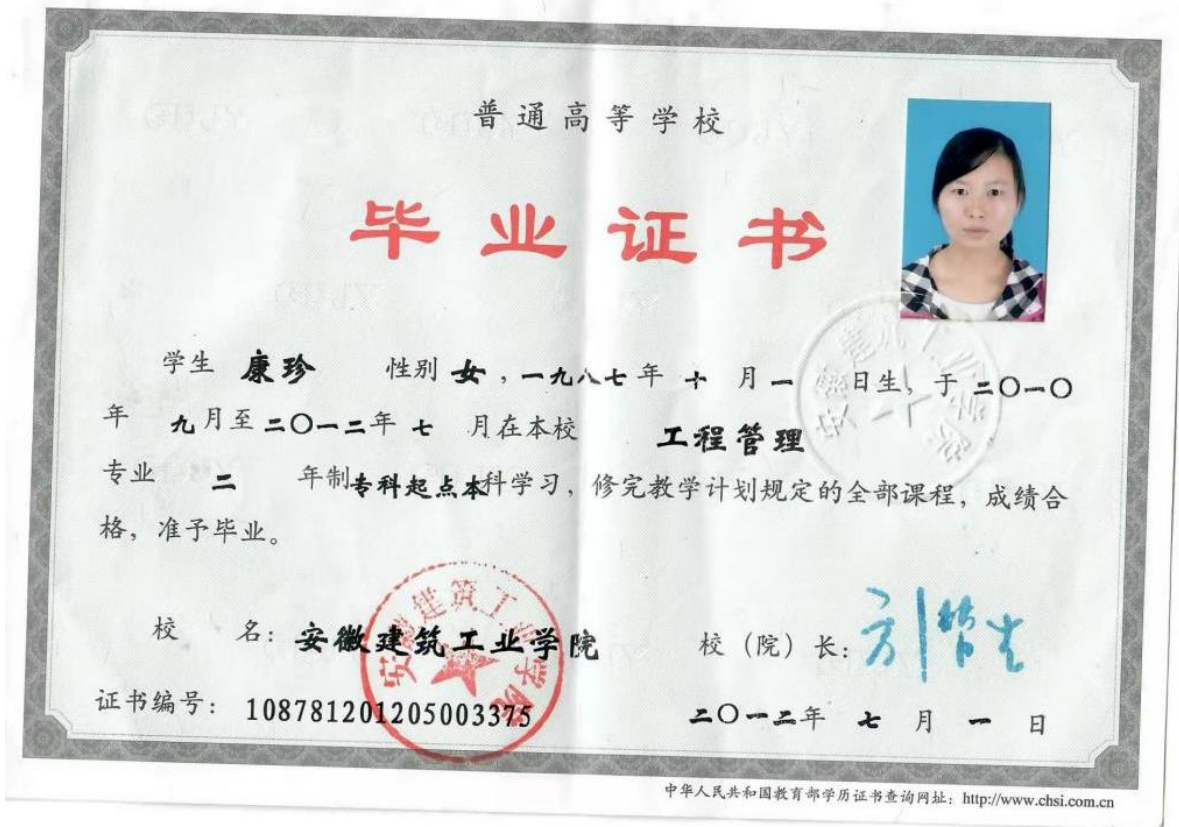 普通高等学校
毕业证书
学生 康珍 性别 女，一九八七年 十 月 一 日生，于 二〇一〇
年 九月至二〇一二年 七 月在本校 工程管理
专业 二 年制专科起点本科学习，修完教学计划规定的全部课程，成绩合
格，准予毕业。
校 名：安徽建筑工业学院 校（院）长：
安徽建筑工业学院
证书编号：108781201205003375 二〇一二年 七 月 一 日
中华人民共和国教育部学历证书查询网址：http://www.chsi.com.cn